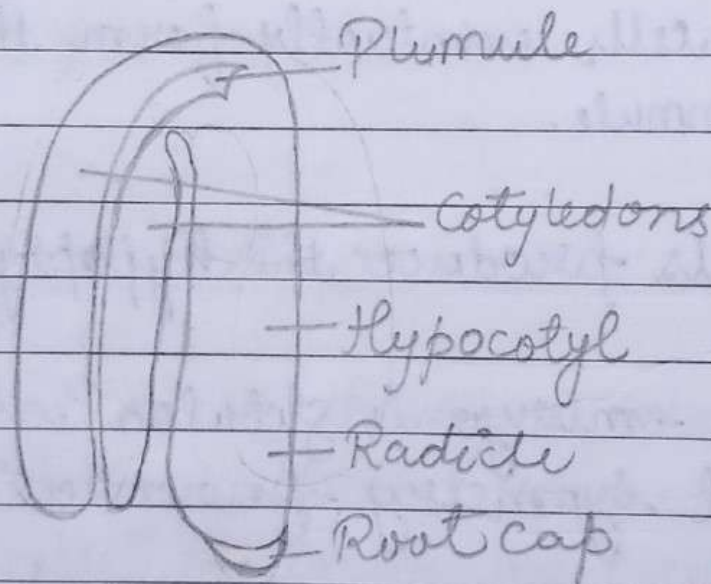 Plumule
Cotyledons
Hypocotyl
Radicle
Root cap